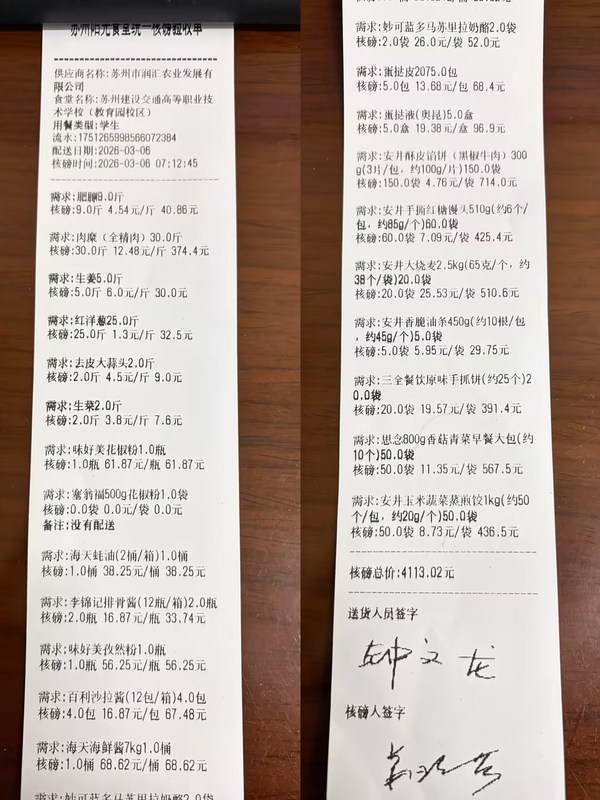 苏州阳光食堂统一核磅验收单
供应商名称:苏州市润汇农业发展有
限公司
食堂名称:苏州建设交通高等职业技
术学校（教育园校区）
用餐类型:学生
流水:1751265998566072384
配送日期:2026-03-06
核磅时间:2026-03-06 07:12:45
需求:肥膘9.0斤
核磅:9.0斤 4.54元/斤 40.86元
需求:肉糜（全精肉）30.0斤
核磅:30.0斤 12.48元/斤 374.4元
需求:生姜5.0斤
核磅:5.0斤 6.0元/斤 30.0元
需求:红洋葱25.0斤
核磅:25.0斤 1.3元/斤 32.5元
需求:去皮大蒜头2.0斤
核磅:2.0斤 4.5元/斤 9.0元
需求:生菜2.0斤
核磅:2.0斤 3.8元/斤 7.6元
需求:味好美花椒粉1.0瓶
核磅:1.0瓶 61.87元/瓶 61.87元
需求:塞翁福500g花椒粉1.0袋
核磅:0.0袋 0.0元/袋 0.0元
备注:没有配送
需求:海天蚝油(2桶/箱)1.0桶
核磅:1.0桶 38.25元/桶 38.25元
需求:李锦记排骨酱(12瓶/箱)2.0瓶
核磅:2.0瓶 16.87元/瓶 33.74元
需求:味好美孜然粉1.0瓶
核磅:1.0瓶 56.25元/瓶 56.25元
需求:百利沙拉酱(12包/箱)4.0包
核磅:4.0包 16.87元/包 67.48元
需求:海天海鲜酱7kg1.0桶
核磅:1.0桶 68.62元/桶 68.62元
需求:妙可蓝多马苏里拉奶酪2.0袋
需求:妙可蓝多马苏里拉奶酪2.0袋
核磅:2.0袋 26.0元/袋 52.0元
需求:蛋挞皮2075.0包
核磅:5.0包 13.68元/包 68.4元
需求:蛋挞液(奥昆)5.0盒
核磅:5.0盒 19.38元/盒 96.9元
需求:安井酥皮馅饼（黑椒牛肉）300
g(3片/包，约100g/片)150.0袋
核磅:150.0袋 4.76元/袋 714.0元
需求:安井手撕红糖馒头510g(约6个/
包，约85g/个)60.0袋
核磅:60.0袋 7.09元/袋 425.4元
需求:安井大烧麦2.5kg(65克/个，约
38个/袋)20.0袋
核磅:20.0袋 25.53元/袋 510.6元
需求:安井香脆油条450g(约10根/包
，约45g/个)5.0袋
核磅:5.0袋 5.95元/袋 29.75元
需求:三全餐饮原味手抓饼(约25个)2
0.0袋
核磅:20.0袋 19.57元/袋 391.4元
需求:思念800g香菇青菜早餐大包(约
10个)50.0袋
核磅:50.0袋 11.35元/袋 567.5元
需求:安井玉米蔬菜蒸煎饺1kg(约50
个/包，约20g/个)50.0袋
核磅:50.0袋 8.73元/袋 436.5元
核磅总价:4113.02元
送货人员签字
核磅人签字